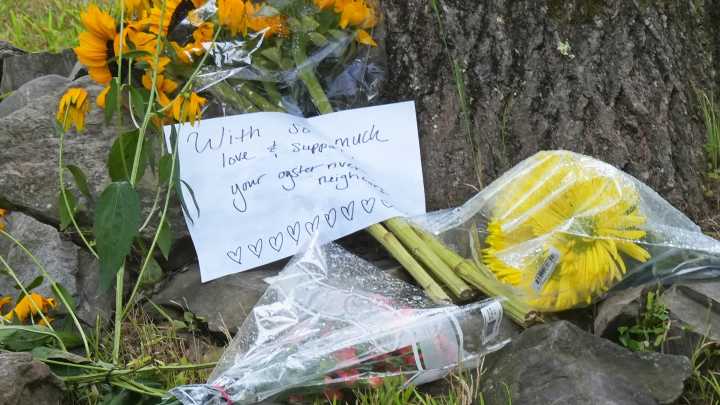 With so much
love & support
your oyster river
neighbors
♡ ♡ ♡ ♡ ♡ ♡ ♡ ♡ ♡